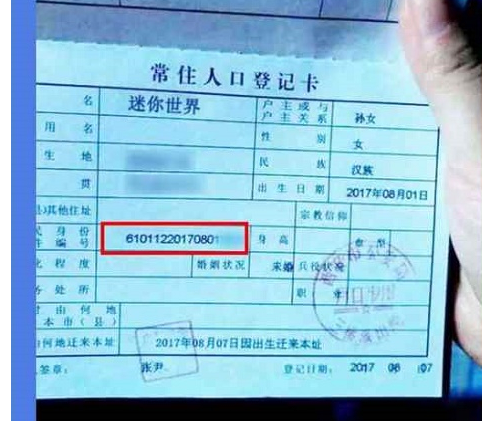 常住人口登记卡
名 迷你世界 户主或与户主关系 孙女
用 名 性 别 女
生 地 民 族 汉族
贯 出生日期 2017年08月01日
其他住址 宗教信仰
民身份 件编号 61011220170801 身高 血型
化程度 婚姻状况 未婚 兵役状况
务处所 职
由何地 本市(县)
由何地迁来本址 2017年08月07日因出生迁来本址
签章: 张尹 登记日期: 2017 08 07